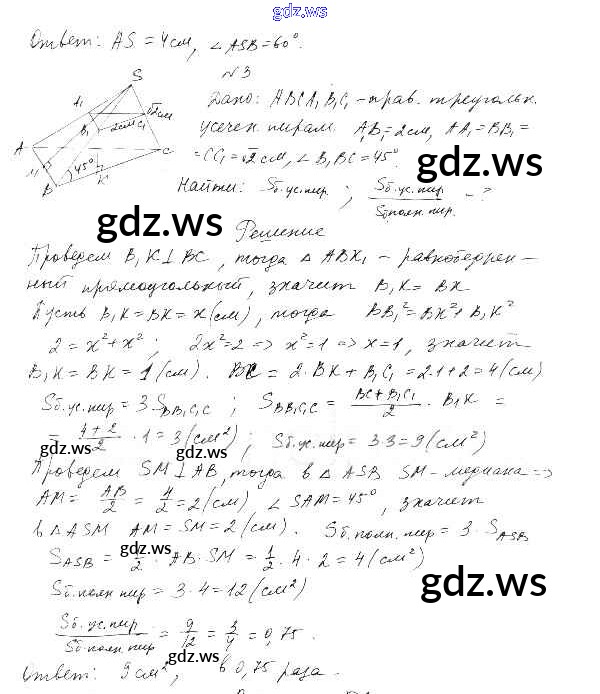 gdz.ws
Ответ: AS = 4 см, ∠ASB = 60°.
№3
S
A₁
√2 см
B₁
2 см C₁
A
C
M
45°
B
K
Дано: ABCA₁B₁C₁ - прав. треугольн.
усечен. пирам. A₁B₁ = 2 см, AA₁ = BB₁ =
= CC₁ = √2 см, ∠B₁BC = 45°.
gdz.ws
Найти: Sб.ус.пир ; Sб.ус.пир / Sб полн. пир. - ?
gdz.ws
Решение
Проведем B₁K ⊥ BC, тогда △ ABK₁ - равнобедрен-
ный прямоугольный, значит B₁K = BK
Пусть B₁K = BK = x (см), тогда BB₁² = BK² + B₁K²
2 = x² + x² ; 2x² = 2 => x² = 1 => x = 1, значит
B₁K = BK = 1 (см). BC = 2·BK + B₁C₁ = 2·1 + 2 = 4 (см)
Sб.ус.пир = 3·S_BB₁C₁C ; S_BB₁C₁C = (BC + B₁C₁)/2 · B₁K =
= (4+2)/2 · 1 = 3 (см²) ; Sб.ус.пир = 3·3 = 9 (см²)
gdz.ws
gdz.ws
Проведем SM ⊥ AB, тогда в △ ASB SM - медиана =>
AM = AB/2 = 4/2 = 2 (см) ∠SAM = 45°, значит
в △ ASM AM = SM = 2 (см). Sб.полн.пир = 3·S_ASB
S_ASB = 1/2 · AB · SM = 1/2 · 4 · 2 = 4 (см²)
gdz.ws
Sб.полн пир = 3·4 = 12 (см²)
gdz.ws
Sб.ус.пир / Sб полн.пир = 9/12 = 3/4 = 0,75.
gdz.ws
Ответ: 9 см², в 0,75 раза.